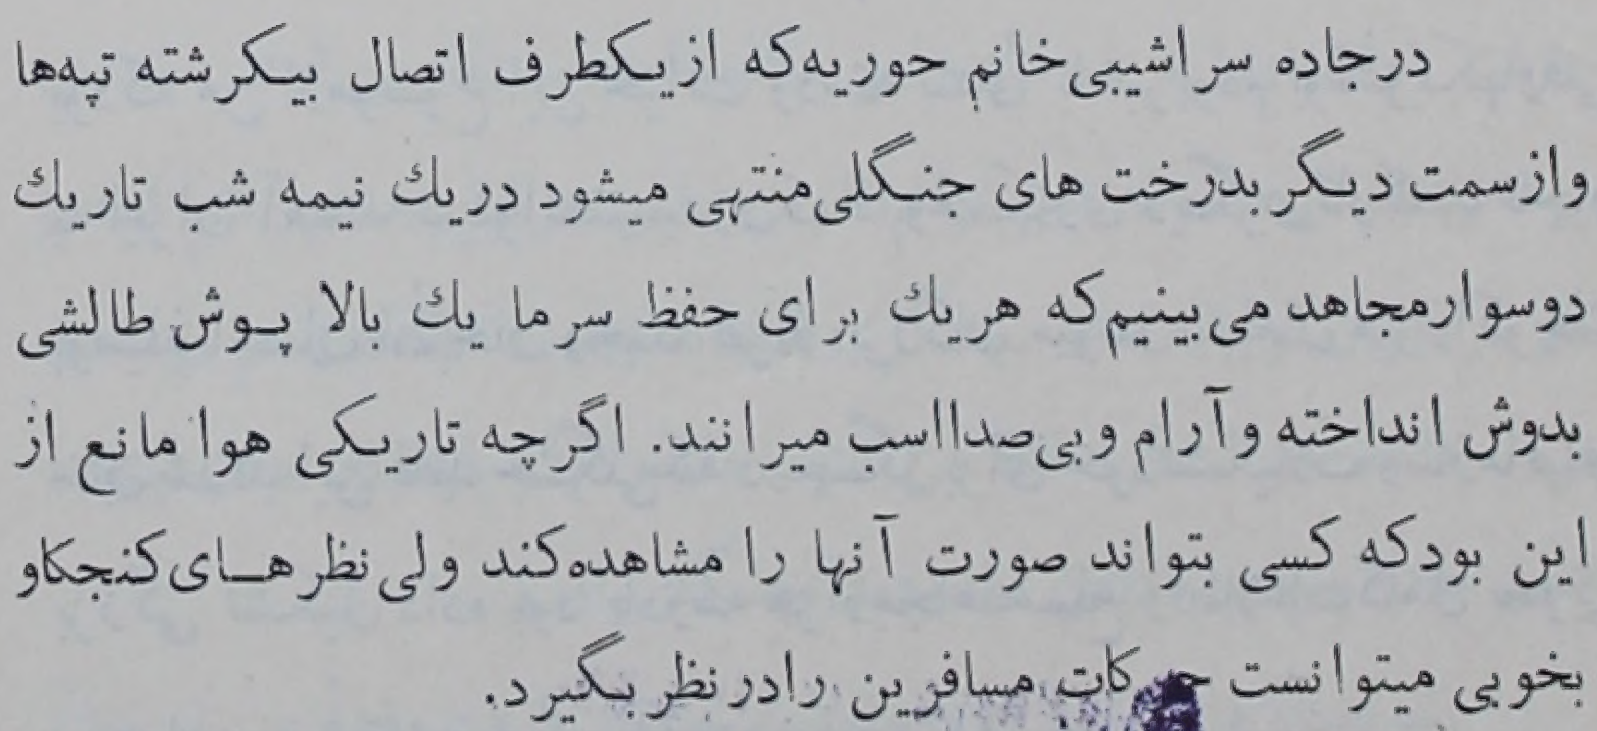 درجاده سراشیبی خانم حوریه که ازیکطرف اتصال بیکرشته تپه‌ها
وازسمت دیگر بدرخت های جنگلی منتهی میشود دریك نیمه شب تاریك
دوسوارمجاهد می بینیم که هریك برای حفظ سرما یك بالا پوش طالشی
بدوش انداخته وآرام وبی صدااسب میرانند. اگرچه تاریکی هوا مانع از
این بودکه کسی بتواند صورت آنها را مشاهده کند ولی نظرهای کنجکاو
بخوبی میتوانست حرکات مسافرین رادرنظر بگیرد.